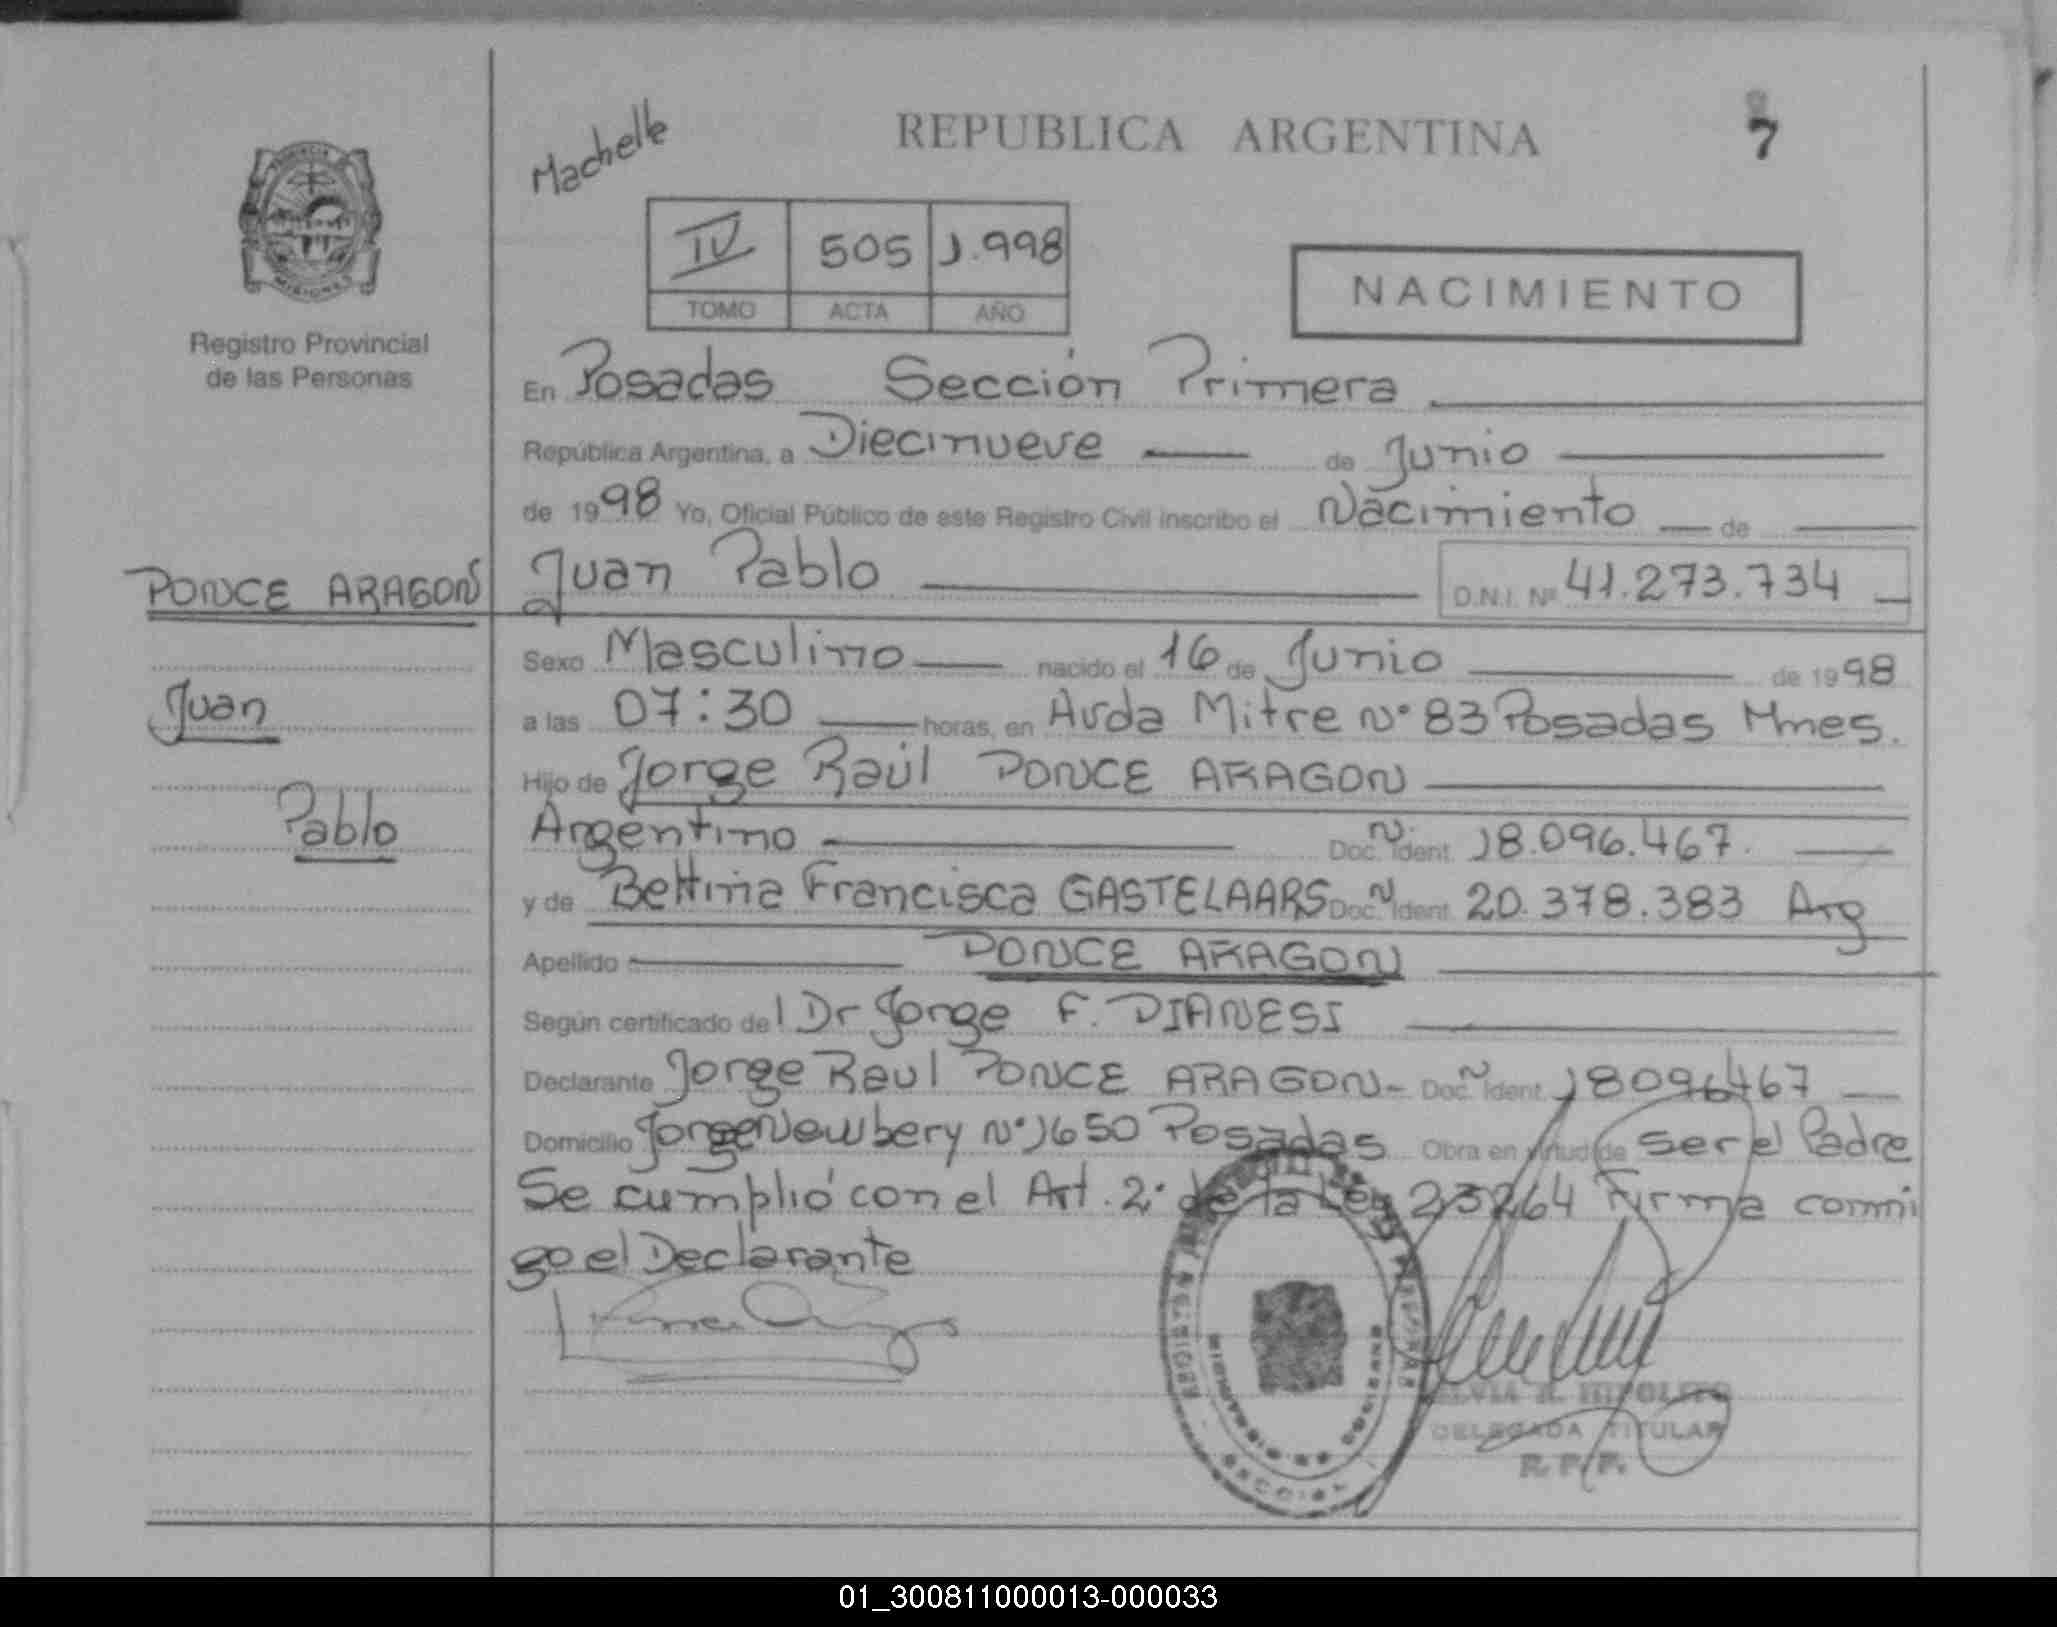 Machelle
REPUBLICA ARGENTINA
7
IV 505 1.998
TOMO ACTA AÑO
NACIMIENTO
Registro Provincial
de las Personas
En Posadas Sección Primera
República Argentina, a Diecinueve de Junio
de 1998 Yo, Oficial Público de este Registro Civil inscribo el Nacimiento de
PONCE ARAGON Juan Pablo D.N.I. Nº 41.273.734
Sexo Masculino nacido el 16 de Junio de 1998
Juan
a las 07:30 horas, en Avda Mitre Nº 83 Posadas Mnes.
Hijo de Jorge Raúl PONCE ARAGON
Pablo
Argentino Doc. Nº Ident. 18.096.467.
y de Bettina Francisca GASTELAARS Doc. N Ident. 20.378.383 Arg
Apellido PONCE ARAGON
Según certificado del Dr Jorge F. DIANESI
Declarante Jorge Raul PONCE ARAGON- Doc. N Ident. 18096467
Domicilio Jorge Newbery Nº 1650 Posadas Obra en virtud de ser el Padre
Se cumplió con el Art. 2º de la Ley 23264 Firma conmi
go el Declarante
HIPOLITO
DELEGADA TITULAR
R. P. P.
01_300811000013-000033